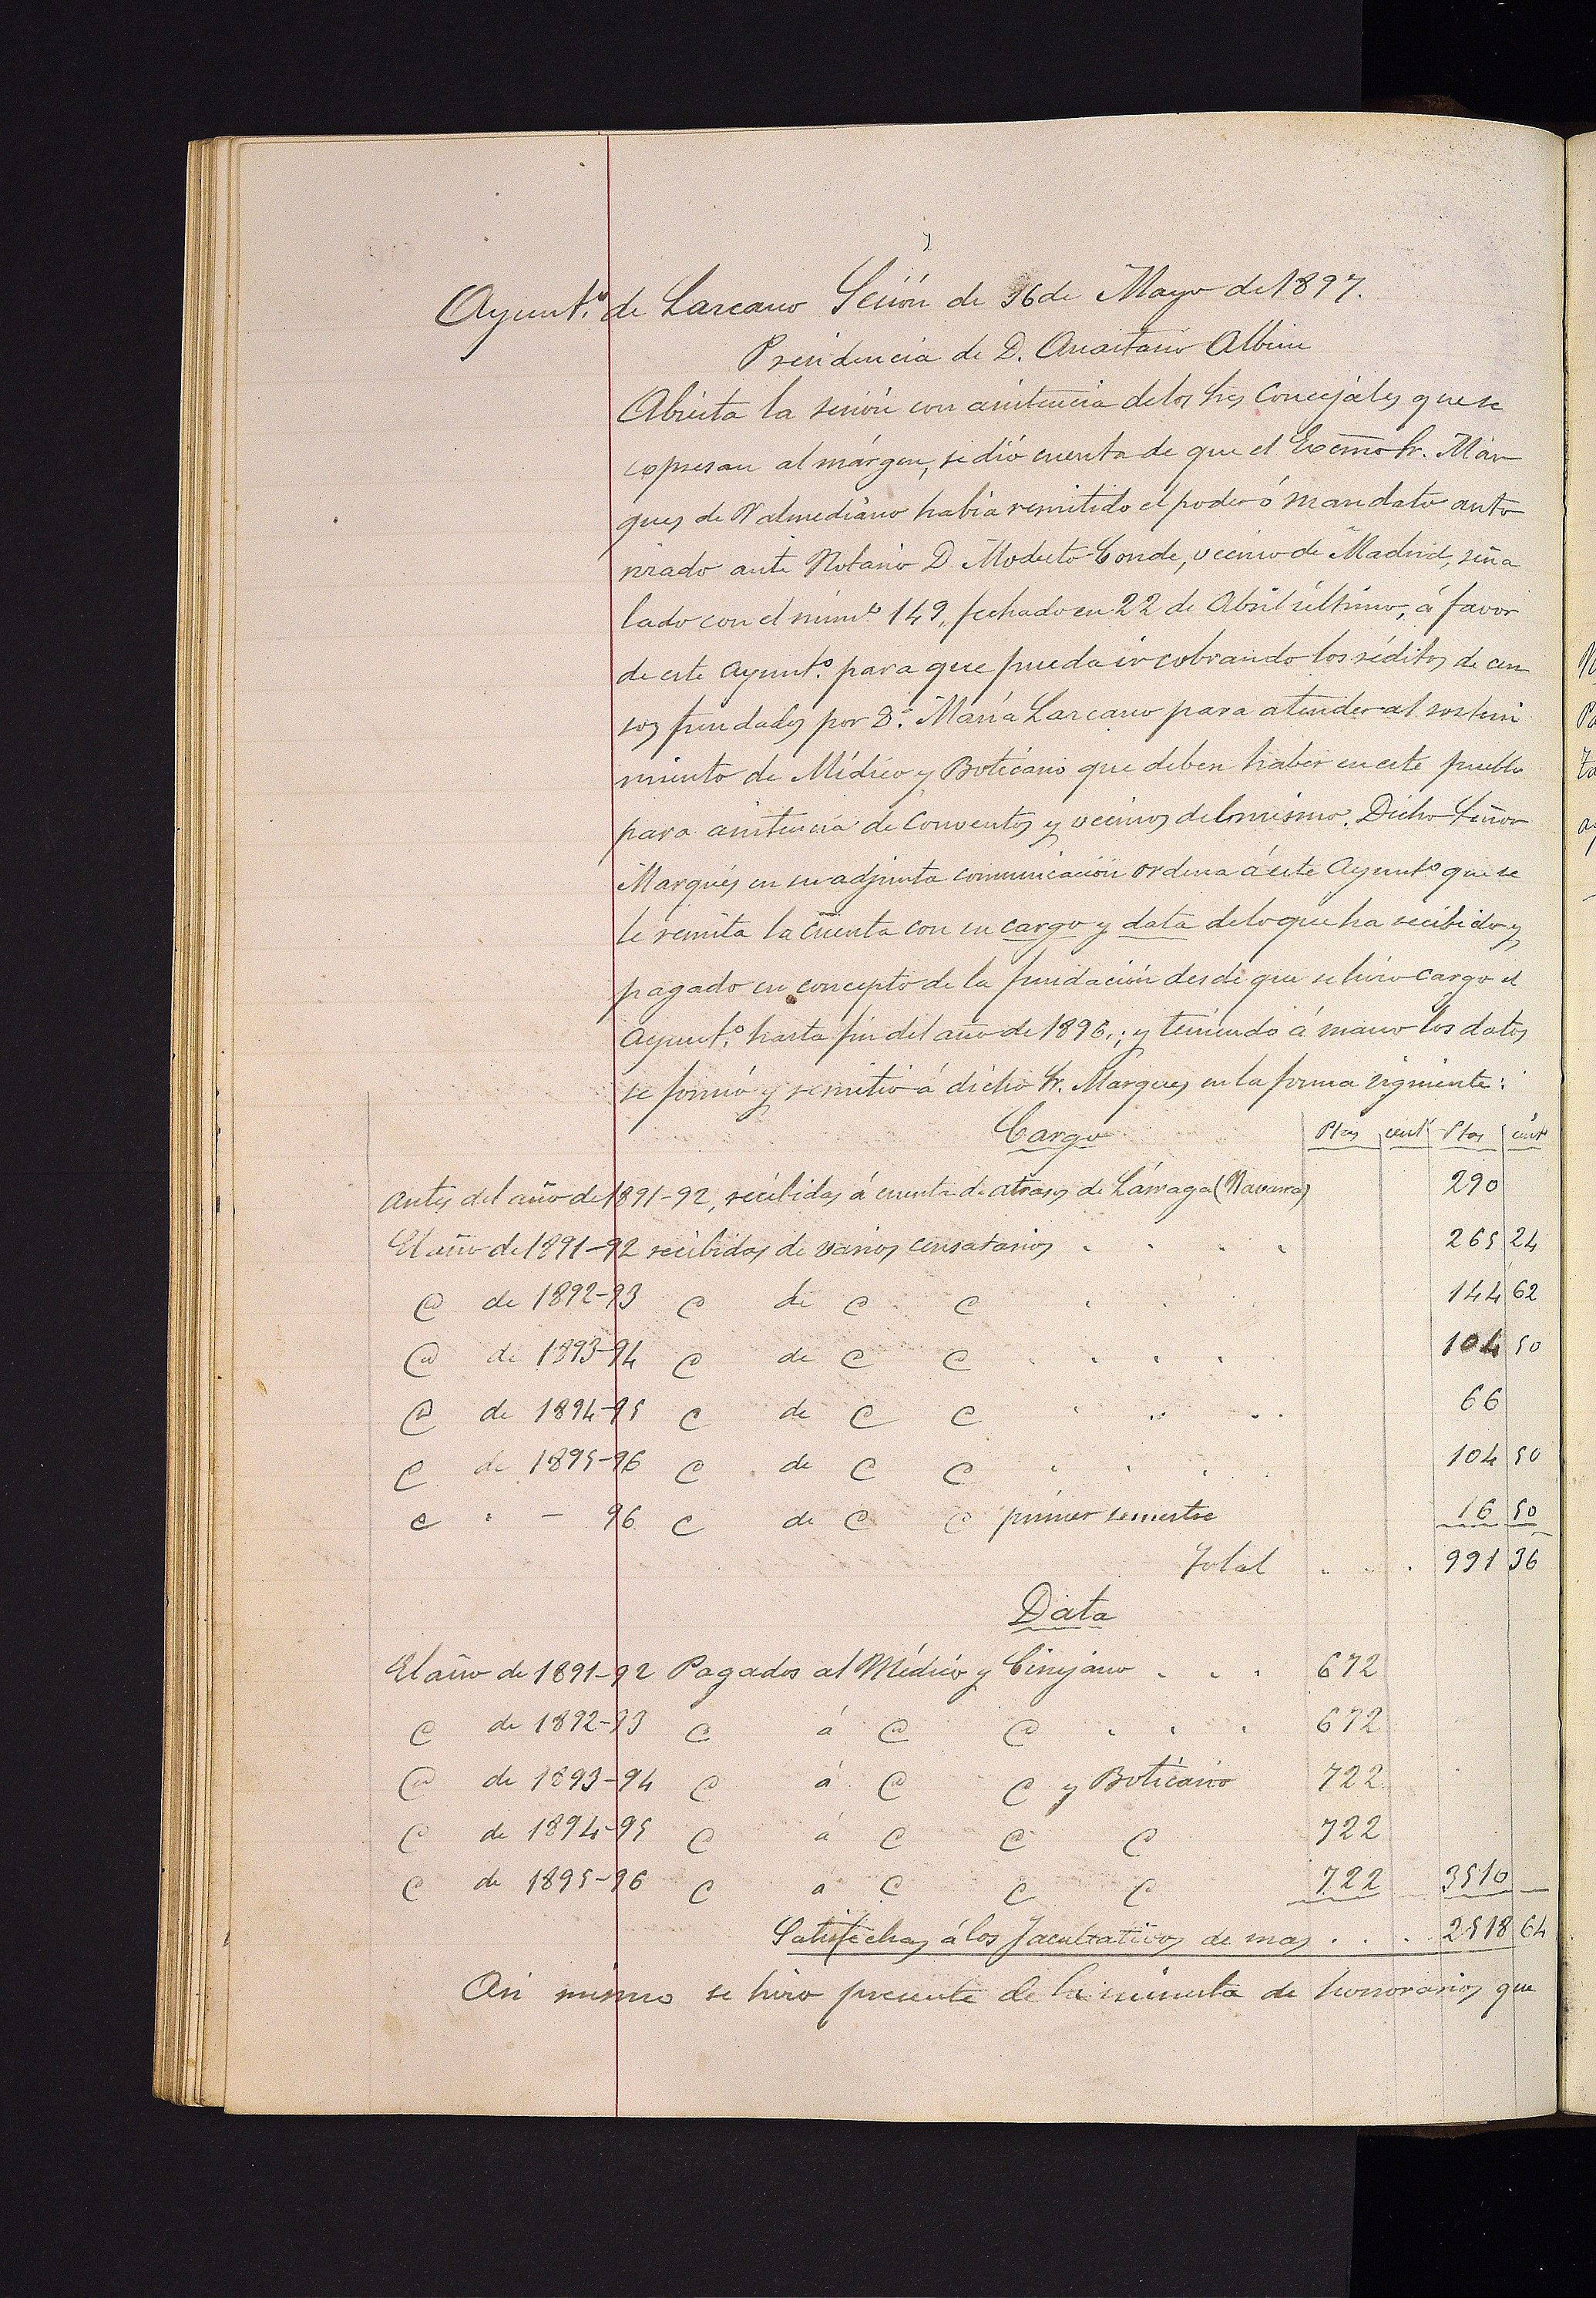 Ayunt.º de Lazcano Sesión de 16 de Mayo de 1897.
Presidencia de D. Anastasio Albisu
Abierta la sesión con asistencia de los Sres Concejáles que se
expresan al márgen, se dió cuenta de que el Excmo Sr. Mar
ques de Valmediano había remitido el poder ó mandato auto
rizado ante Notario D. Modesto Conde, vecino de Madrid, seña
lado con el núm.º 149, fechado en 22 de Abril último, á favor
de este Ayunt.º para que pueda ir cobrando los réditos de cen
sos fundados por D.ª María Lazcano para atender al sosteni
miento de Médico y Boticario que deben haber en este pueblo
para asistencia de Conventos y vecinos del mismo. Dicho Señor
Marqués en su adjunta comunicación ordena á este Ayunt.º que se
le remita la cuenta con su cargo y data de lo que ha recibido y
pagado en concepto de la fundación desde que se hizo cargo el
Ayunt.º hasta fin del año de 1896,; y teniendo á mano los datos
se formó y remitió á dicho Sr. Marques en la forma siguiente:
Cargo Ptas cent Ptas cent
Antes del año de 1891-92, recibidas á cuenta de atrasos de Lárraga (Navarra) 290
El año de 1891-92 recibidas de varios censatarios . . . . 265 24
@ de 1892-93 @ de @ @ . . 144 62
@ de 1893-94 @ de @ @ . . . . 104 50
@ de 1894-95 @ de @ @ . . . 66
@ de 1895-96 @ de @ @ . . . 104 50
@ " - 96 @ de @ @ primer semestre 16 50
Total . . . 991 36
Data
El año de 1891-92 Pagados al Médico y Cirujano . . . 672
@ de 1892-93 @ á @ @ . . . 672
@ de 1893-94 @ á @ @ y Boticario 722
@ de 1894-95 @ á @ @ @ 722
@ de 1895-96 @ á @ @ @ 722 3510
Satisfechas á los facultativos de mas . . . 2518 64
Asi mismo se hizo presente de la minuta de honorarios que